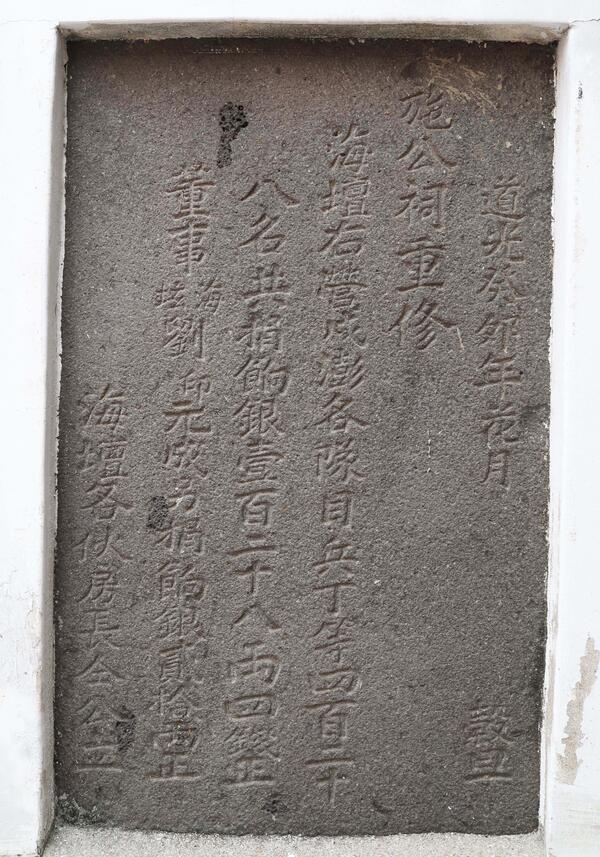 道光癸卯年花月 穀旦
施公祠重修
海壇右營戍澎各隊目兵丁等四百二十
八名共捐餉銀壹百二十八両四錢正
董事海坛劉邱元成另捐餉銀貳拾両正
海壇各伙房長仝公立